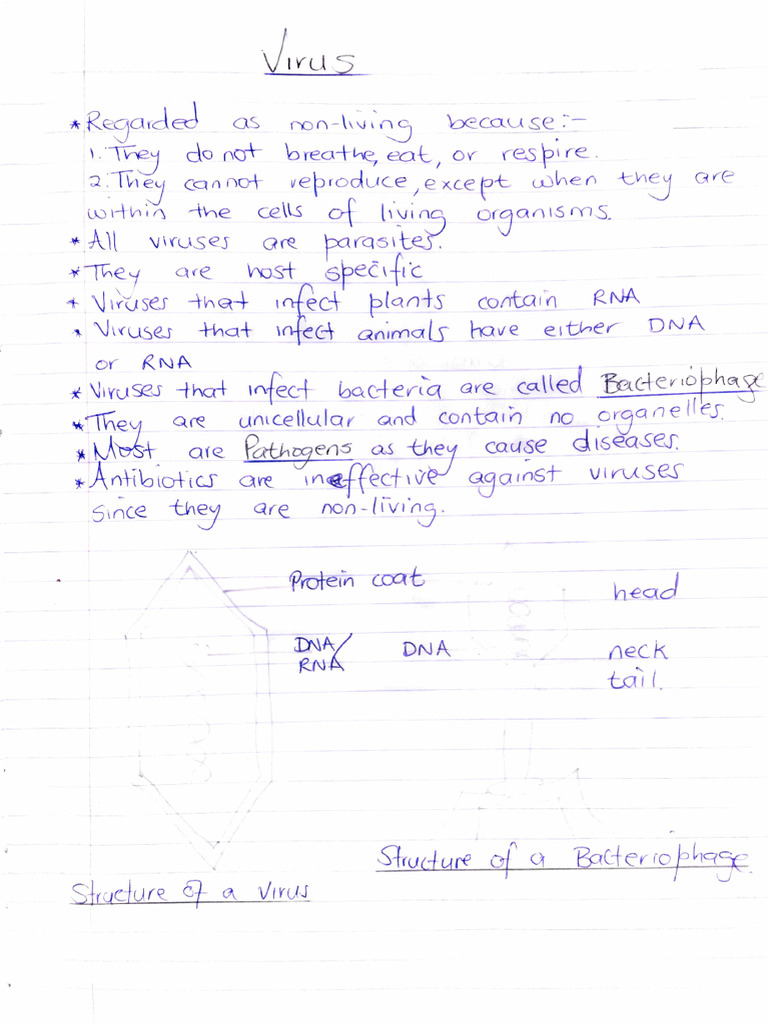 Virus
* Regarded as non-living because:-
1. They do not breathe, eat, or respire.
2. They cannot reproduce, except when they are
within the cells of living organisms.
* All viruses are parasites.
* They are host specific
* Viruses that infect plants contain RNA
* Viruses that infect animals have either DNA
or RNA
* Viruses that infect bacteria are called Bacteriophage
* They are unicellular and contain no organelles.
* Most are Pathogens as they cause diseases.
* Antibiotics are ineffective against viruses
since they are non-living.
Protein coat
head
DNA/
RNA
DNA
neck
tail.
Structure of a Bacteriophage.
Structure of a Virus